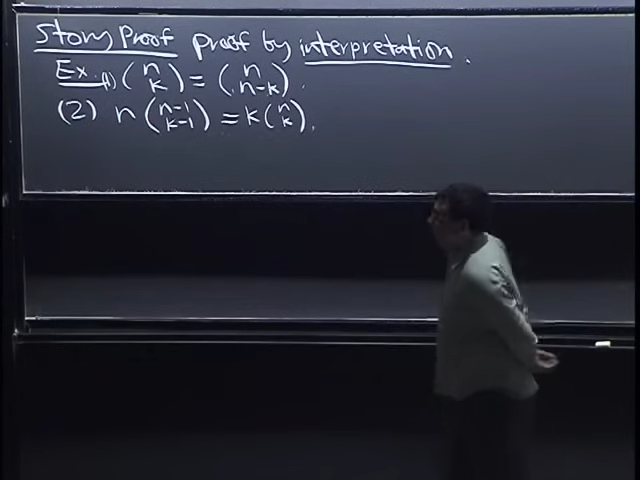 Story Proof proof by interpretation.
Ex. (1) (n k) = (n n-k).
(2) n (n-1 k-1) = k (n k).